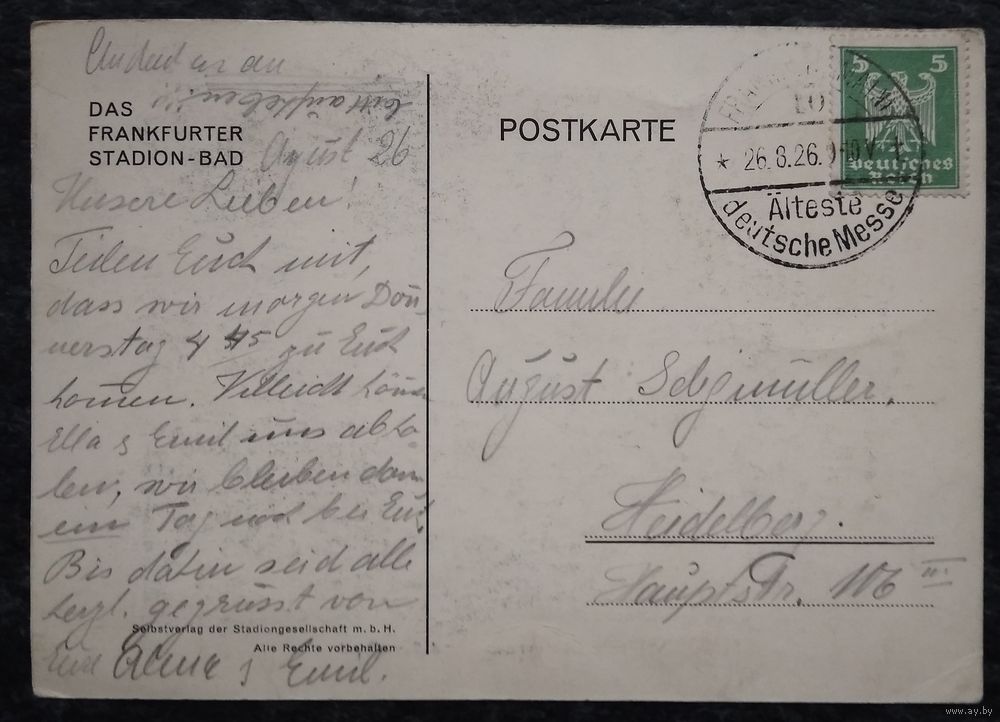 an
bitte
DAS
FRANKFURTER
STADION-BAD
August 26
Unsere Lieben!
Teilen Euch mit,
dass wir morgen Don
nerstag 4 45 zu Euch
kommen. Vielleicht könn
Ella & Emil uns abho
len, wir bleiben dann
ein Tag noch bei Euch.
Bis dahin seid alle
herzl. gegrüsst von
Selbstverlag der Stadiongesellschaft m. b. H.
Alle Rechte vorbehalten
Eure & Emil.
POSTKARTE
5 5
Deutsches
Reich
* 26.8.26. 9-10 V.
Älteste
deutsche Messe
Familie
August
Heidelberg.
Hauptstr. 106 III
www.ay.by